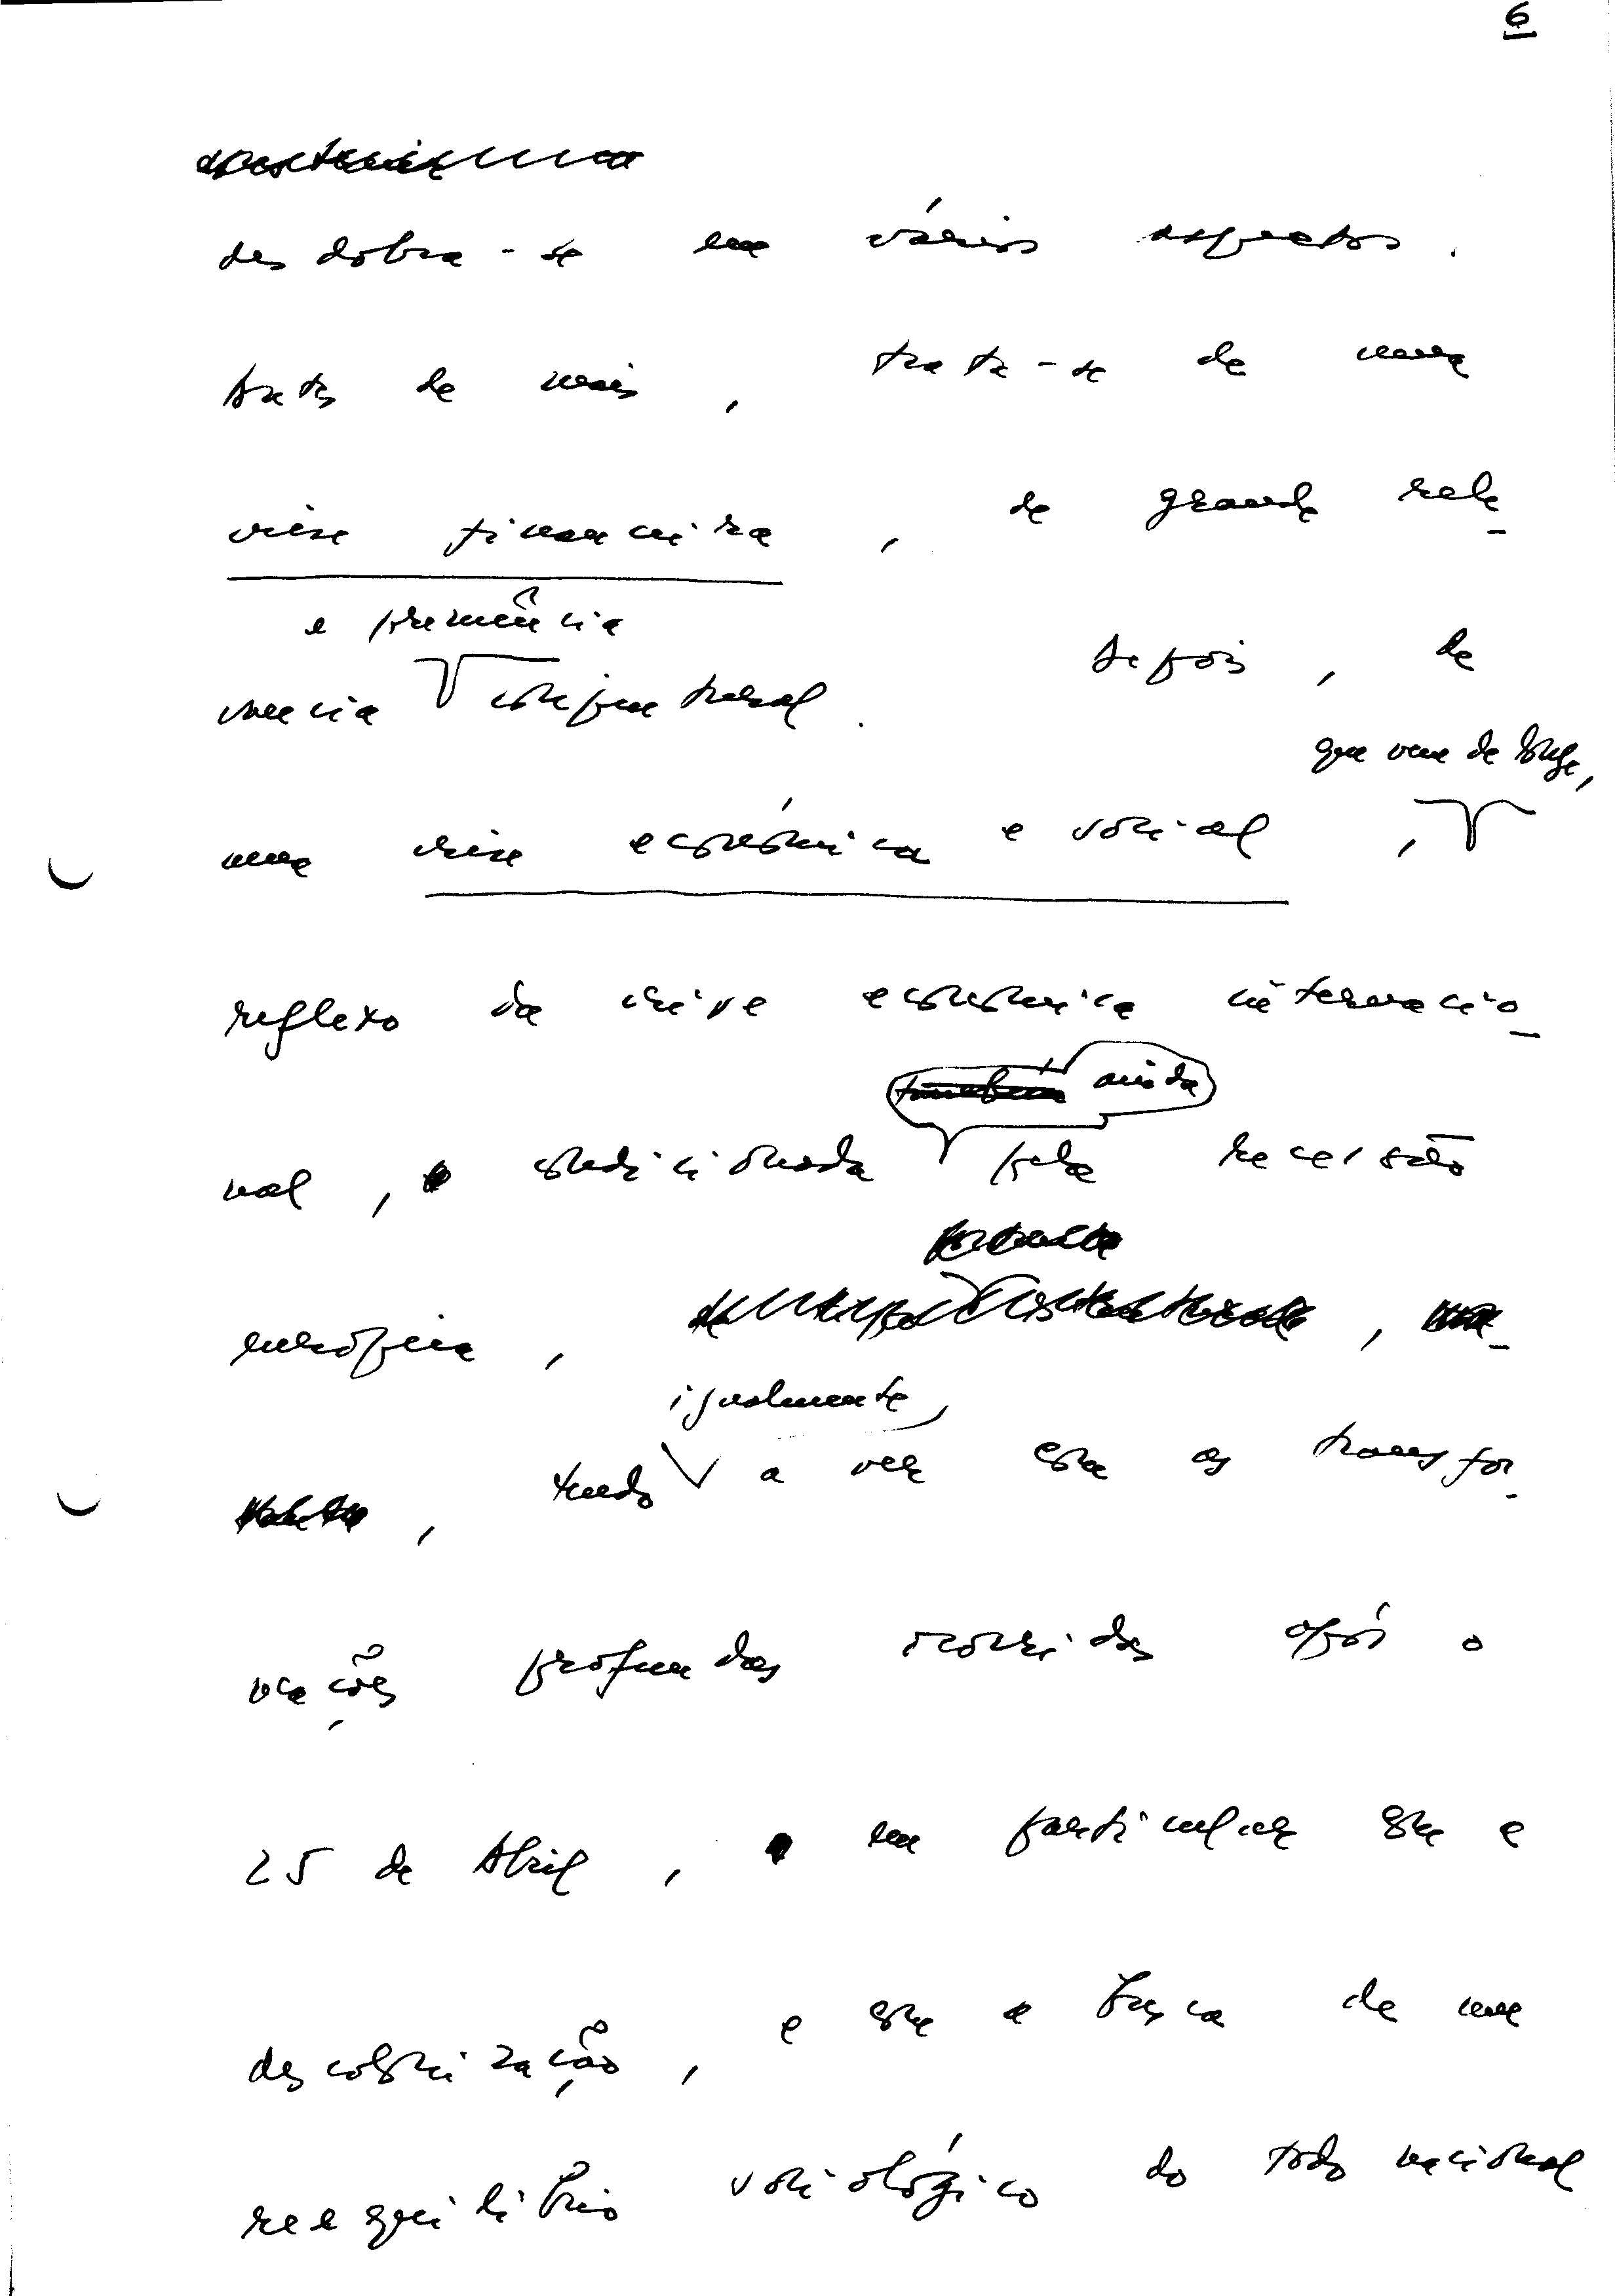 6
desdobra-se em vários aspectos.
Antes de mais, trata-se de uma
crise financeira, de grande rele-
e premência
vância conjuntural. Depois, de
que vem de longe,
uma crise económica e social,
reflexo da crise económica internacio-
ainda
nal, condicionada pela recessão
europeia,
igualmente
tendo a ver com as transfor-
mações profundas ocorridas após o
25 de Abril, em particular com a
descolonização, e com a busca de um
reequilíbrio sociológico do todo nacional